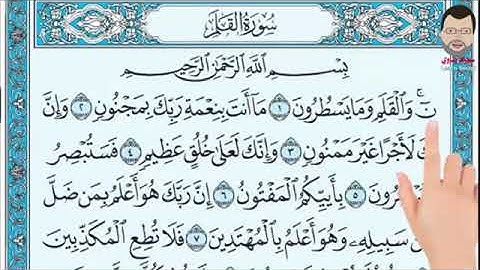 سُورَةُ القَلَمِ
بِسْمِ اللَّهِ الرَّحْمَٰنِ الرَّحِيمِ
نٓ ۚ وَالْقَلَمِ وَمَا يَسْطُرُونَ ۝١ مَا أَنتَ بِنِعْمَةِ رَبِّكَ بِمَجْنُونٍ ۝٢ وَإِنَّ
لَأَجْرًا غَيْرَ مَمْنُونٍ ۝٣ وَإِنَّكَ لَعَلَىٰ خُلُقٍ عَظِيمٍ ۝٤ فَسَتُبْصِرُ
۝٥ بِأَييِّكُمُ الْمَفْتُونُ ۝٦ إِنَّ رَبَّكَ هُوَ أَعْلَمُ بِمَن ضَلَّ
عَن سَبِيلِهِ وَهُوَ أَعْلَمُ بِالْمُهْتَدِينَ ۝٧ فَلَا تُطِعِ الْمُكَذِّبِينَ